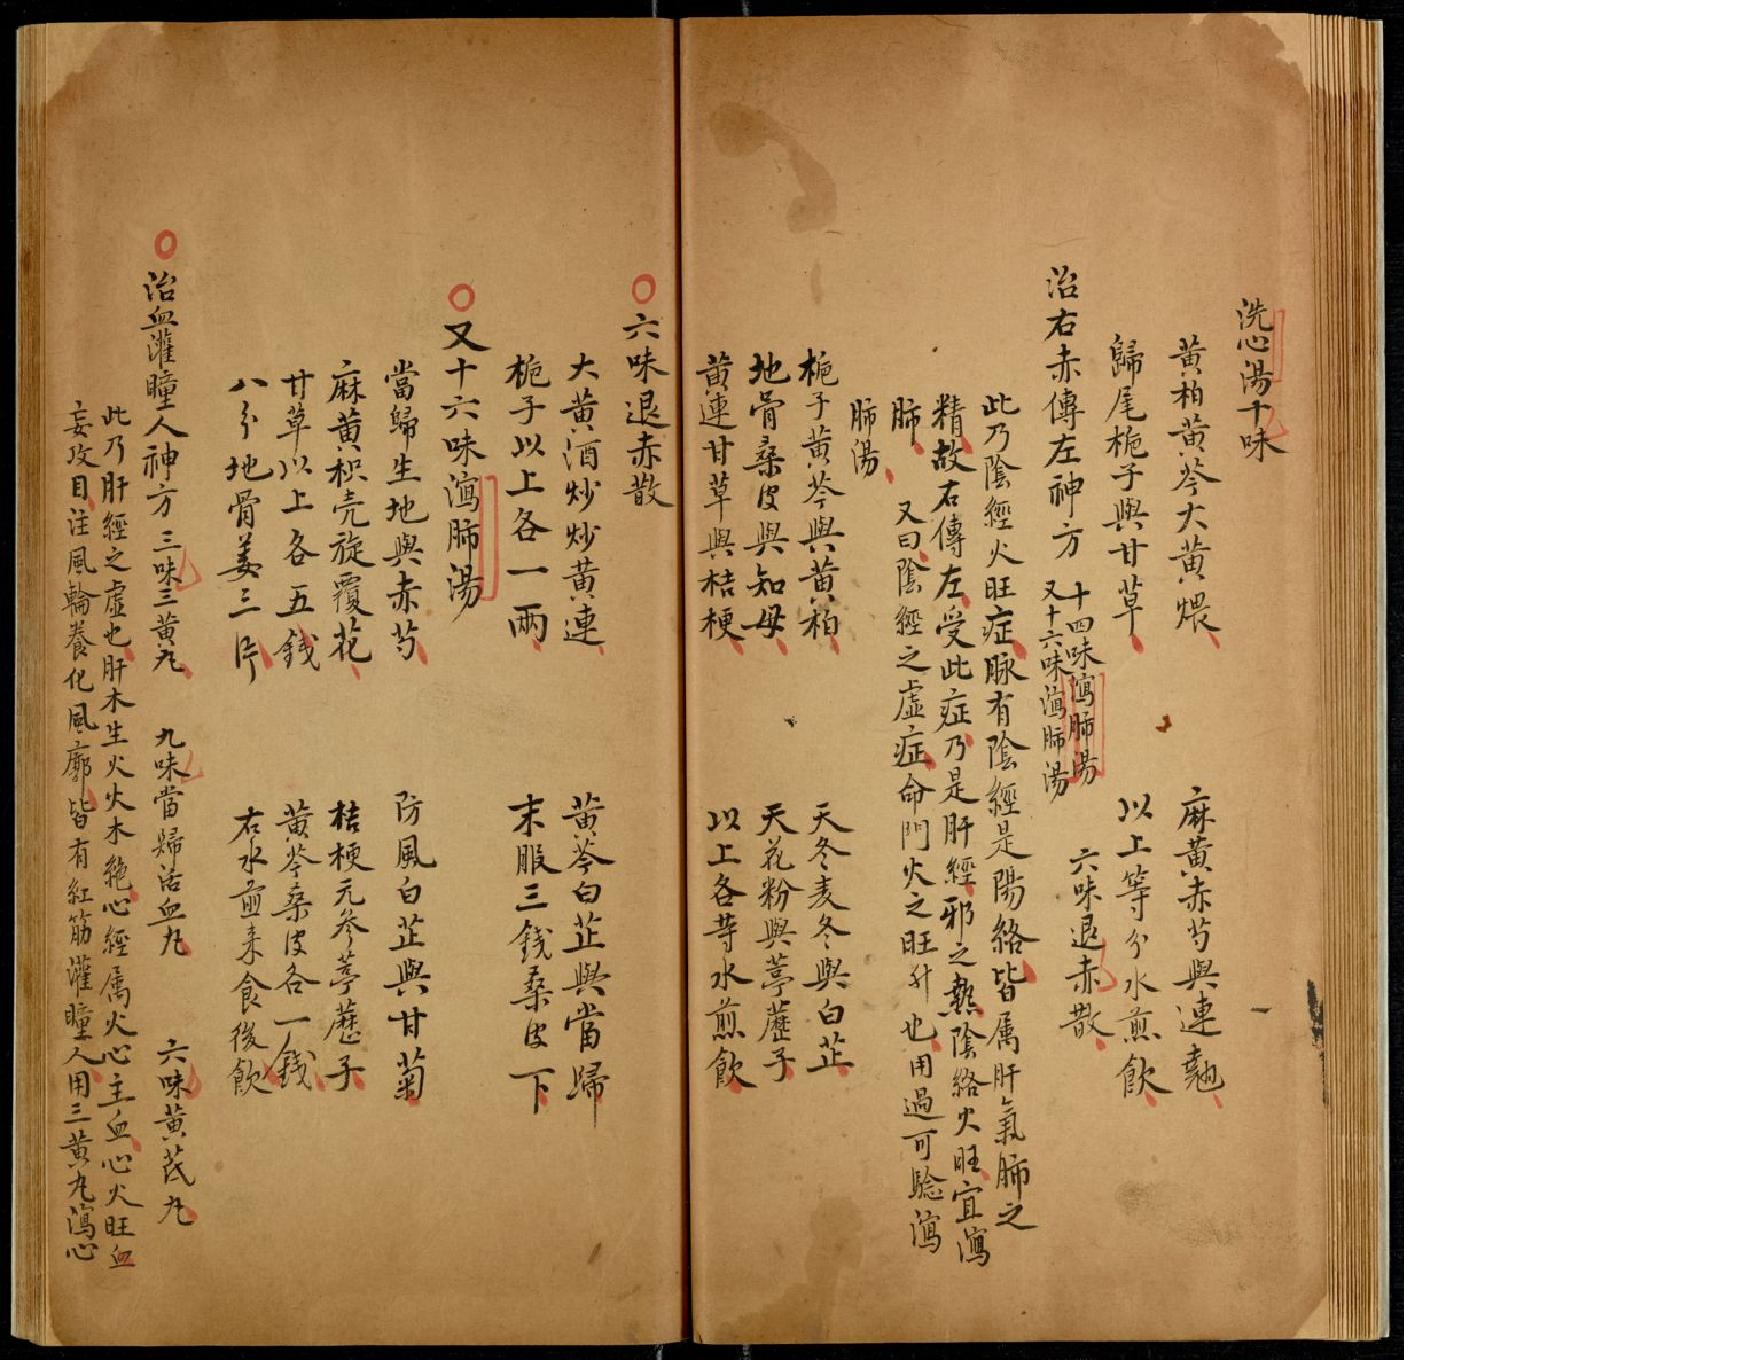 洗心湯十味
黄柏黄芩大黄煨　麻黄赤芍與連翹
歸尾梔子與甘草　以上等分水煎飲
治右赤傳左神方　十四味瀉肺湯　六味退赤散
又十六味瀉肺湯
此乃陰經火旺症脉有陰經是陽絡皆属肝氣肺之
精故右傳左受此症乃是肝經邪之熱陰絡火旺宜瀉
肺　又曰陰經之虚症命門火之旺升也用過可驗瀉
肺湯
梔子黄芩與黄柏　天冬麦冬與白芷
地骨桑皮與知母　天花粉與葶藶子
黄連甘草與桔梗　以上各等水煎飲
一
六味退赤散
大黄酒炒炒黄連　黄芩白芷與當歸
梔子以上各一兩　末服三銭桑皮下
又十六味瀉肺湯
當歸生地與赤芍　防風白芷與甘菊
麻黄枳壳旋覆花　桔梗元参葶藶子
甘草以上各五銭　黄芩桑皮各一銭
八分地骨姜三片　右水煎来食後飲
治血灌瞳人神方　三味三黄丸　九味當歸活血丸　六味黄芪丸
此乃肝經之虚也肝木生火火木絶心經属火心主血心火旺血
妄攻目注風輪養化風廓皆有紅筋灌瞳人用三黄丸瀉心